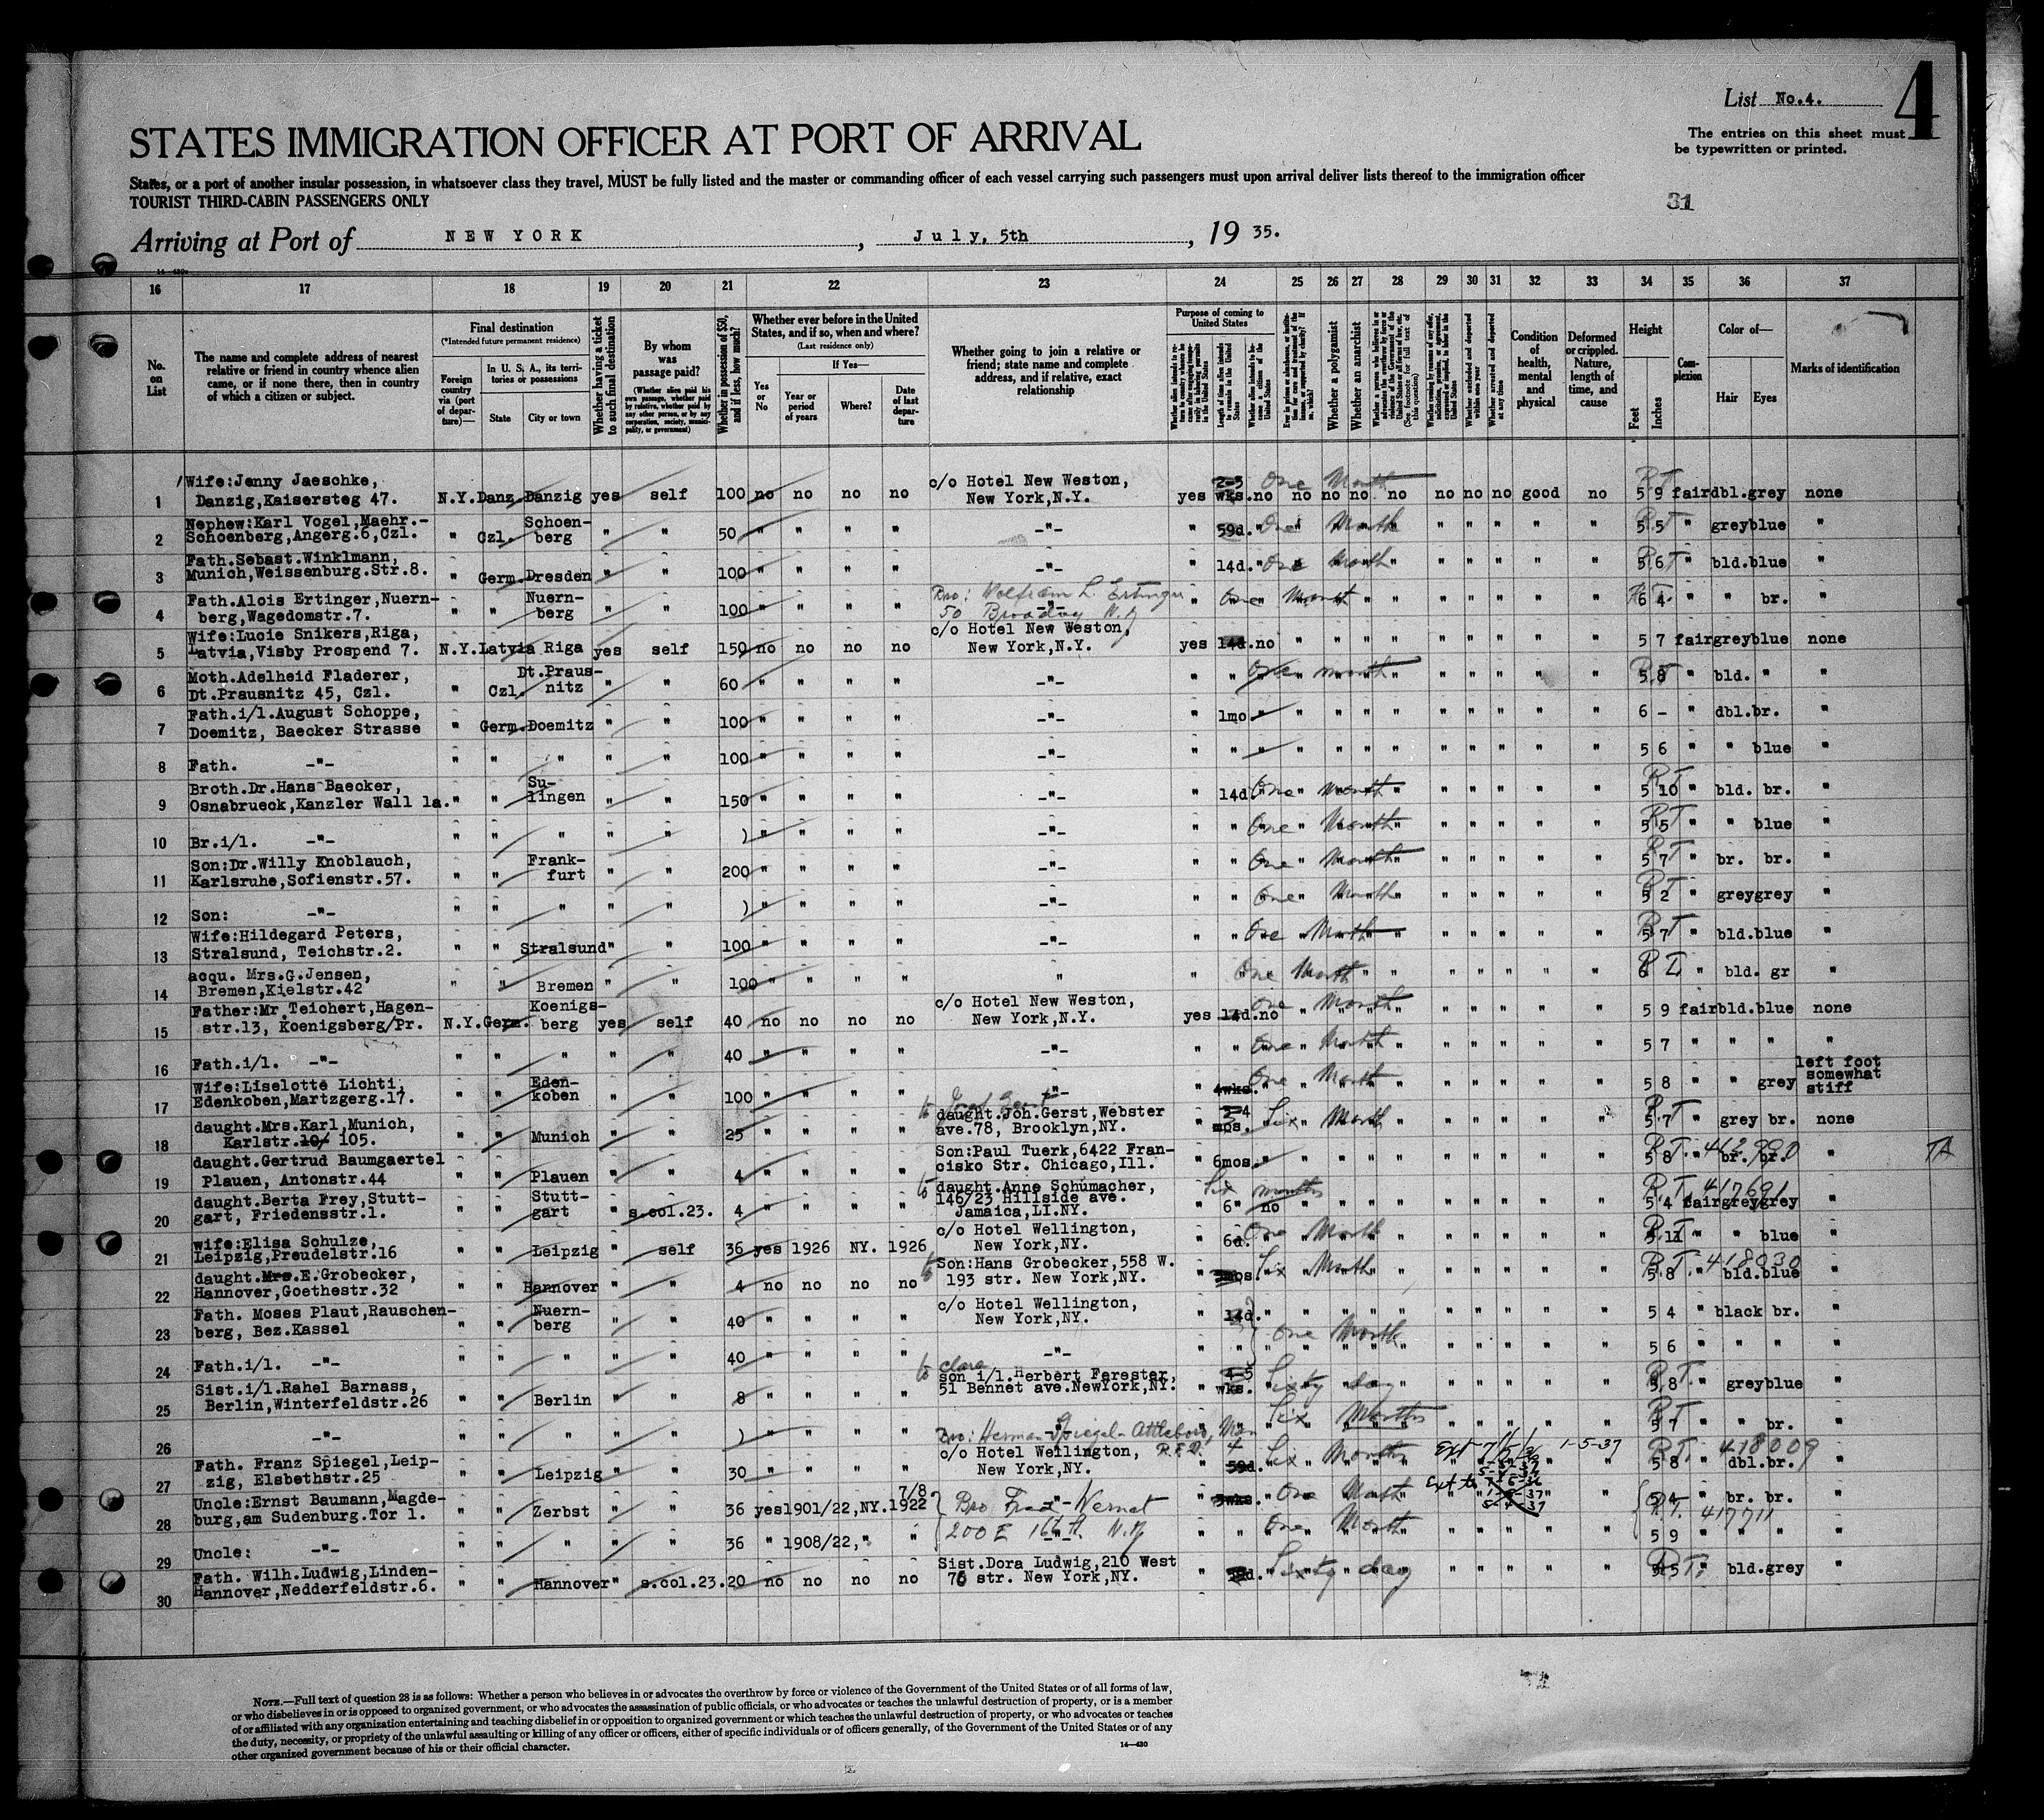 List No.4.
4
The entries on this sheet must
be typewritten or printed.
STATES IMMIGRATION OFFICER AT PORT OF ARRIVAL
States, or a port of another insular possession, in whatsoever class they travel, MUST be fully listed and the master or commanding officer of each vessel carrying such passengers must upon arrival deliver lists thereof to the immigration officer
TOURIST THIRD-CABIN PASSENGERS ONLY
31
Arriving at Port of NEW YORK, July, 5th, 19 35.
16 17 18 19 20 21 22 23 24 25 26 27 28 29 30 31 32 33 34 35 36 37
No. on List
The name and complete address of nearest relative or friend in country whence alien came, or if none there, then in country of which a citizen or subject.
Final destination
(*Intended future permanent residence)
Foreign country via (port of departure)—
In U. S. A., its territories or possessions
State
City or town
Whether having a ticket to such final destination
By whom was passage paid?
(Whether alien paid his own passage, whether paid by relative, whether paid by any other person, or by any corporation, society, municipality, or government)
Whether in possession of $50, and if less, how much?
Whether ever before in the United States, and if so, when and where?
(Last residence only)
Yes or No
If Yes—
Year or period of years
Where?
Date of last departure
Whether going to join a relative or friend; state name and complete address, and if relative, exact relationship
Purpose of coming to United States
Length of time alien intends to remain in the United States
Whether a polygamist
Whether an anarchist
Condition of health, mental and physical
Deformed or crippled. Nature, length of time, and cause
Height
Feet
Inches
Complexion
Color of—
Hair
Eyes
Marks of identification
1 Wife:Jenny Jaeschke, Danzig,Kaisersteg 47. N.Y. Danz. Danzig yes self 100 no no no no c/o Hotel New Weston, New York,N.Y. yes 2-3 wks. no One Month no no no no no no no good no 5 9 fair dbl. grey none
2 Nephew:Karl Vogel,Maehr.- Schoenberg,Angerg.6,Czl. " Czl. Schoen- berg " " 50 " " " " -"- " 59d. " One Month 5 5 " grey blue "
3 Fath.Sebast.Winklmann, Munich,Weissenburg.Str.8. " Germ. Dresden " " 100 " " " " -"- " 14d. " One Month 5 6 " bld. blue "
4 Fath.Alois Ertinger,Nuern- berg,Wagedomstr.7. " " Nuern- berg " " 100 " " " " Bro: Wolfram L. Ertinger 50 Broadway N.Y " One Month 6 4 " " br. "
5 Wife:Lucie Snikers,Riga, Latvia,Visby Prospend 7. N.Y. Latvia Riga yes self 150 no no no no c/o Hotel New Weston, New York,N.Y. yes 14d. no 5 7 fair grey blue none
6 Moth.Adelheid Fladerer, Dt.Prausnitz 45, Czl. " Czl. Dt.Praus- nitz " " 60 " " " " -"- " " One month 5 8 " bld. " "
7 Fath.i/l.August Schoppe, Doemitz, Baecker Strasse " Germ. Doemitz " " 100 " " " " -"- " 1mo 6 - " dbl. br. "
8 Fath. -"- " " " " " 100 " " " " -"- " " 5 6 " " blue "
9 Broth.Dr.Hans Baecker, Osnabrueck,Kanzler Wall 1a. " " Su- lingen " " 150 " " " " -"- " 14d One Month 5 10 " bld. br. "
10 Br.i/l. -"- " " " " " ) " " " " -"- " " One Month 5 5 " " blue "
11 Son:Dr.Willy Knoblauch, Karlsruhe,Sofienstr.57. " " Frank- furt " " 200 " " " " -"- " " One Month 5 7 " br. br. "
12 Son: -"- " " " " " ) " " " " -"- " " One Month 5 2 " grey grey "
13 Wife:Hildegard Peters, Stralsund, Teichstr.2. " " Stralsund " " 100 " " " " -"- " " One Month 5 7 " bld. blue "
14 acqu. Mrs.G.Jensen, Bremen,Kielstr.42 " " Bremen " " 100 " " " " " " One Month " bld. gr "
15 Father:Mr Teichert,Hagen- str.13, Koenigsberg/Pr. N.Y. Germ. Koenigs- berg yes self 40 no no no no c/o Hotel New Weston, New York,N.Y. yes 14d. no One Month 5 9 fair bld. blue none
16 Fath.i/l. -"- " " " " " 40 " " " " -"- " " One Month 5 7 " " " "
17 Wife:Liselotte Lichti, Edenkoben,Martzgerg.17. " " Eden- koben " " 100 " " " " -"- " 4wks. One Month 5 8 " " grey left foot somewhat stiff
18 daught.Mrs.Karl,Munich, Karlstr.10/ 105. " " Munich " " 25 " " " " daught.Joh.Gerst,Webster ave.78, Brooklyn,NY. " 2-4 mos. Six Month 5 7 " grey br. none
19 daught.Gertrud Baumgaertel Plauen, Antonstr.44 " " Plauen " " 4 " " " " Son:Paul Tuerk,6422 Fran- cisko Str. Chicago,Ill. " 6mos. R.T. 5 8 " br. br. " TA
20 daught.Berta Frey,Stutt- gart, Friedensstr.1. " " Stutt- gart " s.col.23. 4 " " " " daught.Anne Schumacher, 146/23 Hillside ave. Jamaica,LI.NY. " Six months 6" no R.T. 417691 5 4 fair grey grey "
21 wife:Elisa Schulze, Leipzig,Preudelstr.16 " " Leipzig " self 36 yes 1926 NY. 1926 c/o Hotel Wellington, New York,NY. " 6d. One Month 5 11 " " blue "
22 daught.Mrs.E.Grobecker, Hannover,Goethestr.32 " " Hannover " " 4 no no no no Son:Hans Grobecker,558 W. 193 str. New York,NY. " mos. Six Month R.T. 418030 5 8 " bld. blue "
23 Fath. Moses Plaut,Rauschen- berg, Bez.Kassel " " Nuern- berg " " 40 " " " " c/o Hotel Wellington, New York,NY. " 14d. 5 4 " black br. "
24 Fath.i/l. -"- " " " " " 40 " " " " -"- " " One Month 5 6 " " " "
25 Sist.i/l.Rahel Barnass, Berlin,Winterfeldstr.26 " " Berlin " " 8 " " " " Clara son i/l.Herbert Farester, 51 Bennet ave.NewYork,NY. " 4-5 wks. Sixty day R.T. 5 8 " grey blue "
26 -"- " " " " " ) " " " " -"- " " Six Months R.T 5 7 " " br. "
27 Fath. Franz Spiegel,Leip- zig, Elsbethstr.25 " " Leipzig " " 30 " " " " Bro: Herman Spiegel- Attleboro, R.F.D. c/o Hotel Wellington, New York,NY. " 59d. Six Months 1-5-37 R.T. 418009 5 8 " dbl. br. "
28 Uncle:Ernst Baumann,Magde- burg,am Sudenburg.Tor 1. " " Zerbst " " 36 yes 1901/22,NY. 7/8 1922 Bro Fred Wernet " 3wks. One Month Ext to 5 4 " br. br. "
29 Uncle: -"- " " " " " 36 " 1908/22," " 200 E 16th N.Y " " One Month R.T. 417711 5 9 " " " "
30 Fath. Wilh.Ludwig,Linden- Hannover,Nedderfeldstr.6. " " Hannover " s.col.23. 20 no no no no Sist.Dora Ludwig,210 West 76 str. New York,NY. " d. Sixty day R.T. 5 5 " bld. grey "
NOTE.—Full text of question 28 is as follows: Whether a person who believes in or advocates the overthrow by force or violence of the Government of the United States or of all forms of law,
or who disbelieves in or is opposed to organized government, or who advocates the assassination of public officials, or who advocates or teaches the unlawful destruction of property, or is a member
of or affiliated with any organization entertaining and teaching disbelief in or opposition to organized government or which teaches the unlawful destruction of property, or who advocates or teaches
the duty, necessity, or propriety of the unlawful assaulting or killing of any officer or officers, either of specific individuals or of officers generally, of the Government of the United States or of any
other organized government because of his or their official character.
14—430